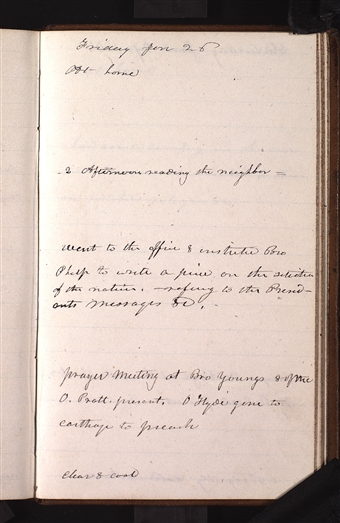 Friday Jan 26
At home
2 Afternoon reading the neighbor=
went to the office & instructed Bro
Phelps to write a piece on the situation
of the nation. refering to the Presid-
ents Messages &c,
prayer Meeting at Bro Youngs
O. Pratt present. O Hyde gone to
carthage to preach
clear & cool